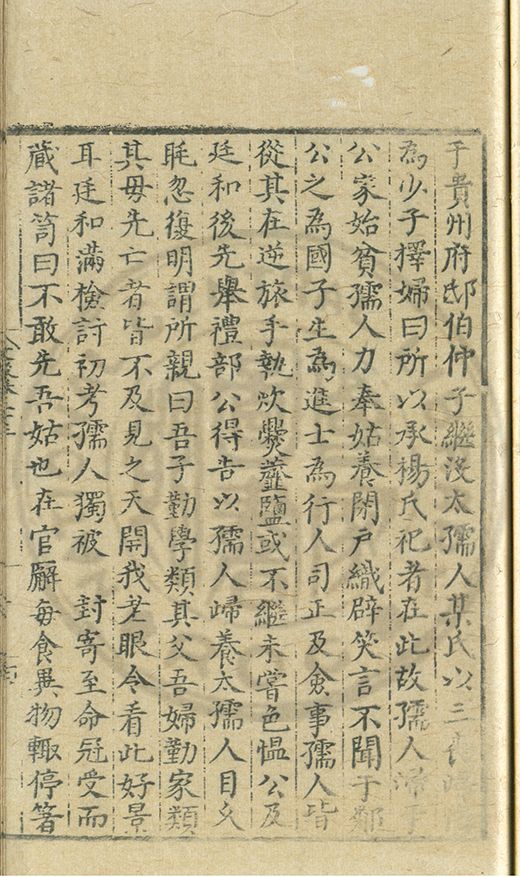 于貴州府邸伯仲子繼没太孺人某氏以三
為少子擇婦曰所以承楊氏祀者在此故孺人歸于
公家始貧孺人力奉姑養閉户織辟笑言不聞于鄰
公之為國子生為進士為行人司正及僉事孺人皆
從其在逆旅手執炊爨虀鹽或不繼未嘗色愠公及
廷和後先舉禮部公得告以孺人歸養太孺人目久
眊忽復明謂所親曰吾子勤學類其父吾婦勤家類
其母先亡者皆不及見之天開我老眼令看此好景
耳廷和滿檢討初考孺人獨被 封寄至命冠受而
蔵諸笥曰不敢先吾姑也在官廨每食異物輙停箸